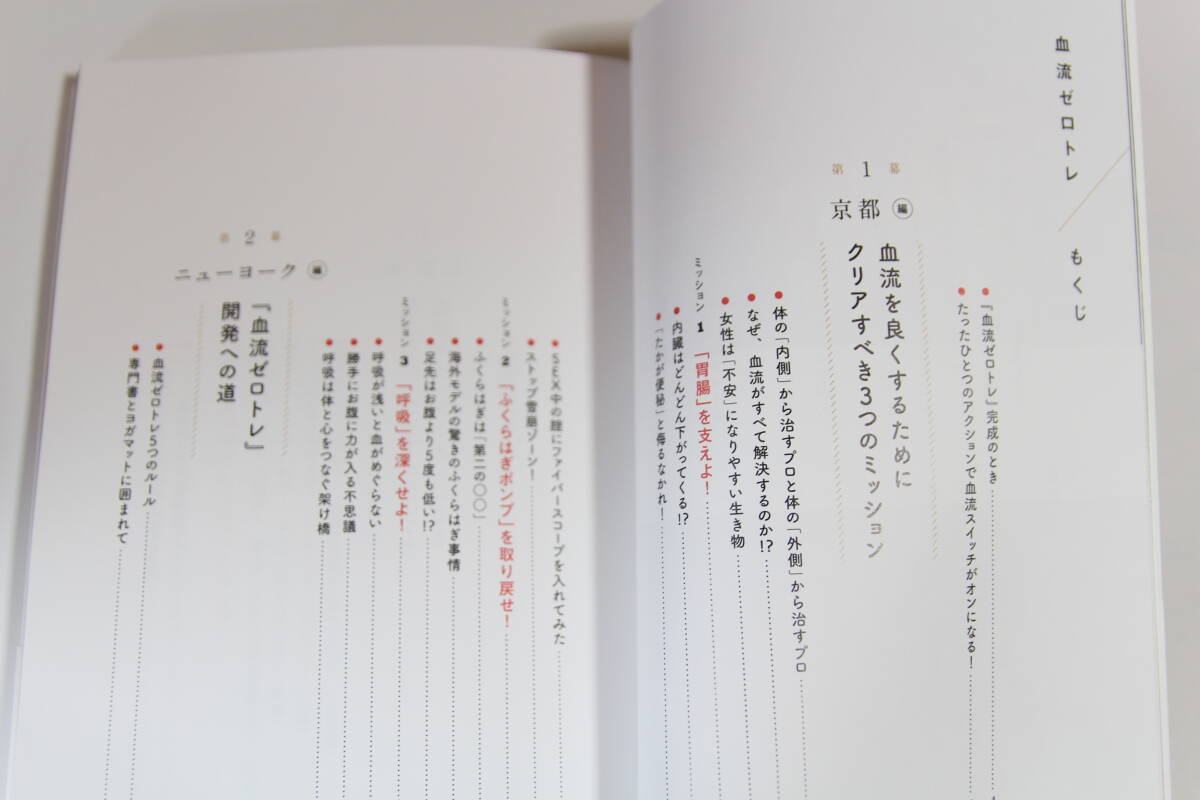 血流ゼロトレ／もくじ
『血流ゼロトレ』完成のとき
たったひとつのアクションで血流スイッチがオンになる！
第1幕
京都編
血流を良くするために
クリアすべき3つのミッション
体の「内側」から治すプロと体の「外側」から治すプロ
なぜ、血流がすべて解決するのか!?
女性は「不安」になりやすい生き物
ミッション1 「胃腸」を支えよ！
内臓はどんどん下がってくる!?
「たかが便秘」と侮るなかれ！
SEX中の膣にファイバースコープを入れてみた
ストップ雪崩ゾーン！
ミッション2 「ふくらはぎポンプ」を取り戻せ！
ふくらはぎは「第二の〇〇」
海外モデルの驚きのふくらはぎ事情
足先はお腹より5度も低い!?
ミッション3 「呼吸」を深くせよ！
呼吸が浅いと血がめぐらない
勝手にお腹に力が入る不思議
呼吸は体と心をつなぐ架け橋
第2幕
ニューヨーク編
『血流ゼロトレ』
開発への道
血流ゼロトレ5つのルール
専門書とヨガマットに囲まれて